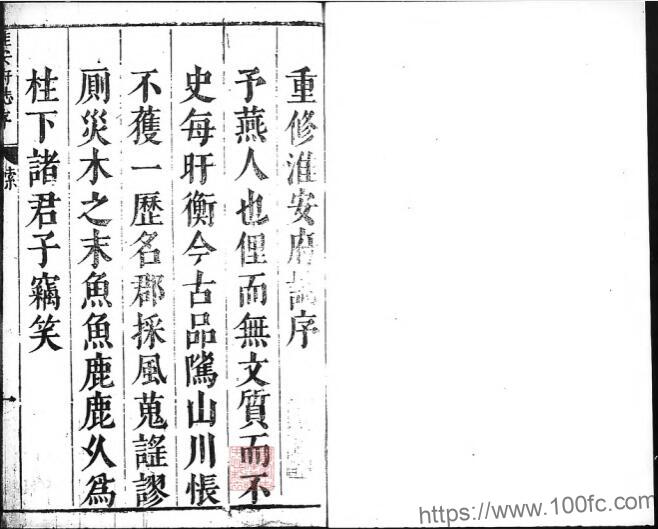 重修淮安府志序
予燕人也俚而無文質而不
史每盱衡今古品隲山川悵
不獲一歷名郡採風蒐謠謬
廁災木之末魚魚鹿鹿久爲
柱下諸君子竊笑
淮安府志序
索
一
https://www.100fc.com